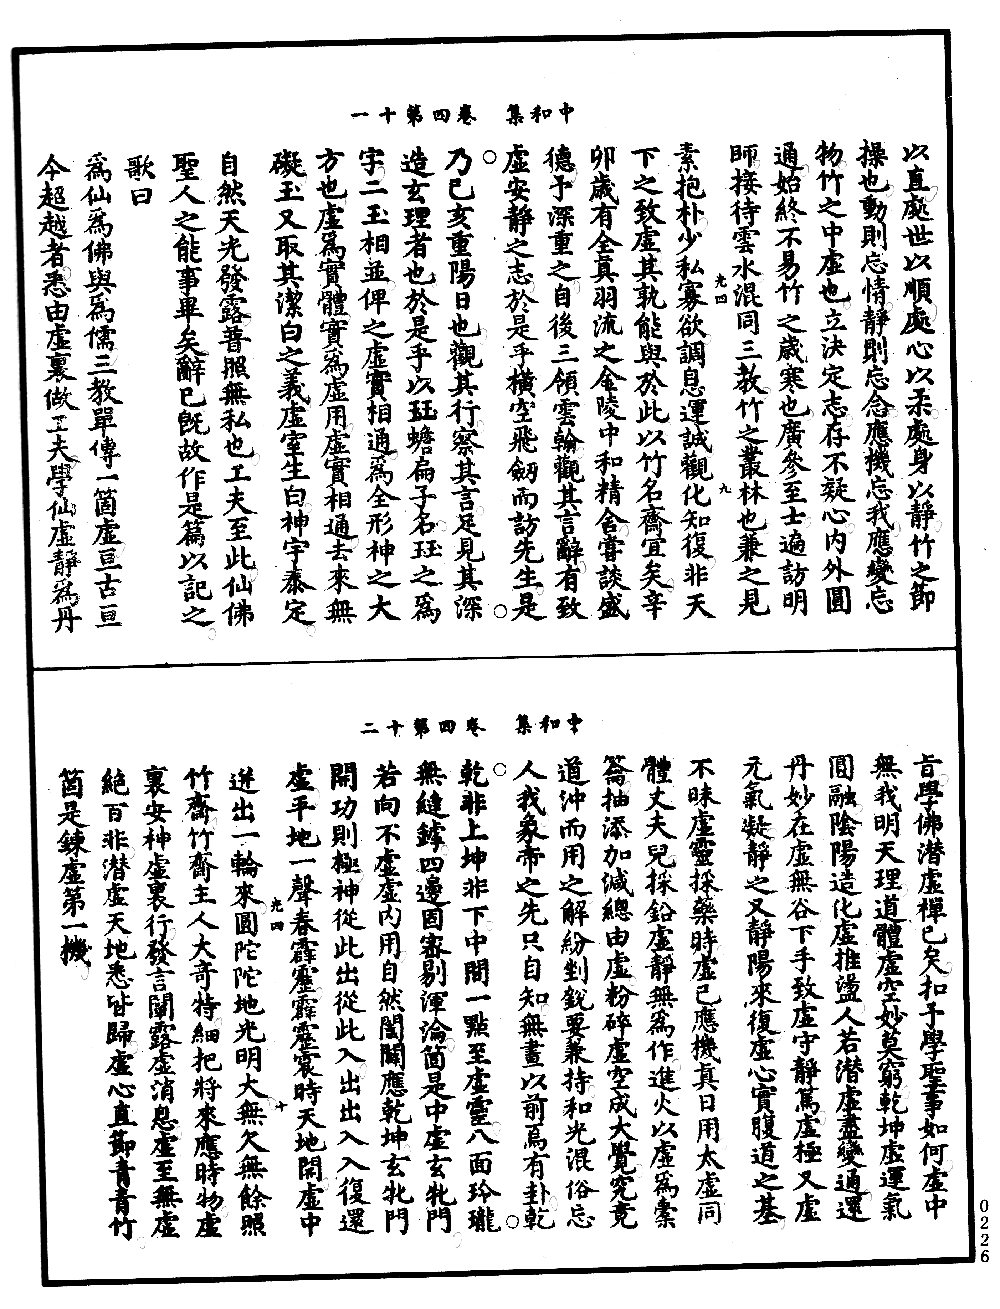 中和集　卷四第十一
以直處世以順處心以柔處身以靜竹之節
操也動則忘情靜則忘念應機忘我應變忘
物竹之中虛也立決定志存不疑心內外圓
通始終不易竹之歲寒也廣參至士遍訪明
師接待雲水混同三教竹之叢林也兼之見
素抱朴少私寡欲調息運誠觀化知復非天
下之致虛其孰能與於此以竹名齋宜矣辛
卯歲有全真羽流之金陵中和精舍嘗談盛
德予深重之自後三領雲輪觀其言辭有致
虛安靜之志於是乎橫空飛劒而訪先生是
乃己亥重陽日也觀其行察其言足見其深
造玄理者也於是乎以玨蟾扁子名玨之爲
字二玉相並俾之虛實相通爲全形神之大
方也虛爲實體實爲虛用虛實相通去來無
礙玉又取其潔白之義虛室生白神宇泰定
自然天光發露普照無私也工夫至此仙佛
聖人之能事畢矣辭已旣故作是篇以記之
歌曰
爲仙爲佛與爲儒三教單傳一箇虛亘古亘
今超越者悉由虛裏做工夫學仙虛靜爲丹
光四
九
中和集　卷四第十二
旨學佛潜虛禪已矣扣予學聖事如何虛中
無我明天理道體虛空妙莫窮乾坤虛運氣
圓融陰陽造化虛推盪人若潜虛盡變通還
丹妙在虛無谷下手致虛守靜篤虛極又虛
元氣凝靜之又靜陽來復虛心實腹道之基
不昧虛靈採藥時虛已應機真日用太虛同
體丈夫兒採鉛虛靜無爲作進火以虛爲橐
籥抽添加減總由虛粉碎虛空成大覺究竟
道沖而用之解紛剉銳要兼持和光混俗忘
人我象帝之先只自知無畫以前焉有卦乾
乾非上坤非下中間一點至虛靈八面玲瓏
無縫罅四邊固密剔渾淪箇是中虛玄牝門
若向不虛虛內用自然闔闢應乾坤玄牝門
開功則極神從此出從此入出出入入復還
虛平地一聲春霹靂霹靂震時天地開虛中
迸出一輪來圓陀陀地光明大無欠無餘照
竹齋竹齋主人大奇特細把將來應時物虛
裏安神虛裏行發言闡露虛消息虛至無虛
絕百非潜虛天地悉皆歸虛心直節青青竹
箇是鍊虛第一機
光四
十
0226